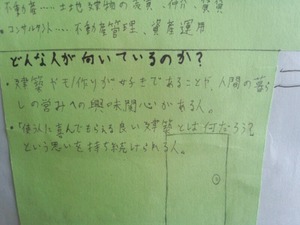 不動産……土地建物の売買、仲介、賃貸
・コンサルタント……不動産管理、資産運用
どんな人が向いているのか?
・建築やモノ作りが好きであることや、人間の暮ら
しの営みへの興味関心がある人。
・「使う人に喜んでもらえる良い建築とは何だろう?
という思いを持ち続けられる人。